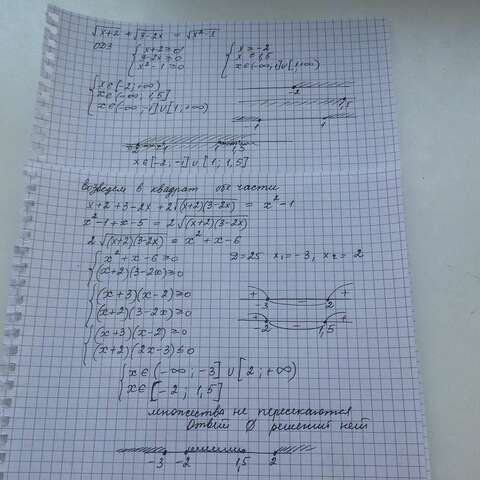 √x+2 + √3-2x = √x²-1
ОДЗ { x+2≥0 { x≥-2
3-2x≥0 x≤1,5
x²-1≥0 x∈(-∞,-1]∪[1;+∞)
{ x∈[-2;+∞)
x∈(-∞; 1,5]
x∈(-∞;-1]∪[1;+∞)
-2
1,5
-1 1
-2 -1 1 1,5
x∈[-2;-1]∪[1; 1,5]
Возведем в квадрат обе части
x+2+3-2x+2√(x+2)(3-2x) = x²-1
x²-1+x-5 = 2√(x+2)(3-2x)
2√(x+2)(3-2x) = x²+x-6
{ x²+x-6≥0 D=25 x₁=-3, x₂=2
(x+2)(3-2x)≥0
{ (x+3)(x-2)≥0 + -3 - 2 +
(x+2)(3-2x)≥0 + -2 - 1,5 +
{ (x+3)(x-2)≥0
(x+2)(2x-3)≤0
{ x∈(-∞;-3]∪[2;+∞)
x∈[-2; 1,5]
множества не пересекаются
Ответ ∅ решений нет
-3 -2 1,5 2